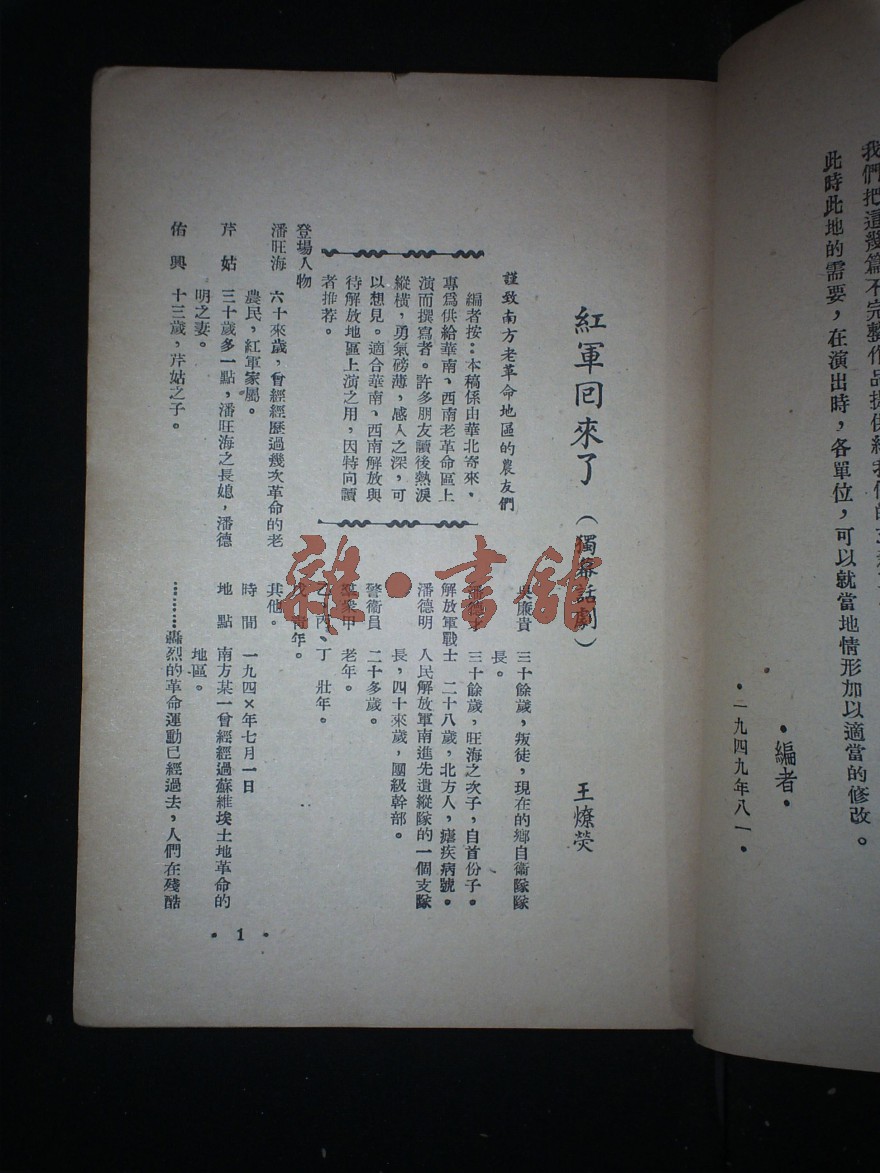 我們把這幾篇不完整作品提供給我們的
此時此地的需要，在演出時，各單位，可以就當地情形加以適當的修改。
•編者•
•一九四九年八一•
紅軍回來了（獨幕話劇）
王燎熒
謹致南方老革命地區的農友們
編者按：本稿係由華北寄來，
專為供給華南、西南老革命區上
演而撰寫者。許多朋友讀後熱淚
縱橫，勇氣磅薄，感人之深，可
以想見。適合華南、西南解放與
待解放地區上演之用，因特向讀
者推荐。
登場人物
潘旺海 六十來歲，曾經經歷過幾次革命的老
農民，紅軍家屬。
芹姑 三十歲多一點，潘旺海之長媳，潘德
明之妻。
佑興 十三歲，芹姑之子。
吳廉貴 三十餘歲，叛徒，現在的鄉自衛隊隊
長。
潘德才 三十餘歲，旺海之次子，自首份子。
解放軍戰士 二十八歲，北方人，瘧疾病號。
潘德明 人民解放軍南進先遣縱隊的一個支隊
長，四十來歲，團級幹部。
警衞員 二十多歲。
羣衆甲 老年。
乙、丙、丁 壯年。
戊 青年。
其他。
時間 一九四×年七月一日
地點 南方某一曾經經過蘇維埃土地革命的
地區。
………轟烈的革命運動已經過去，人們在殘酷
• 1 •
雜•書館